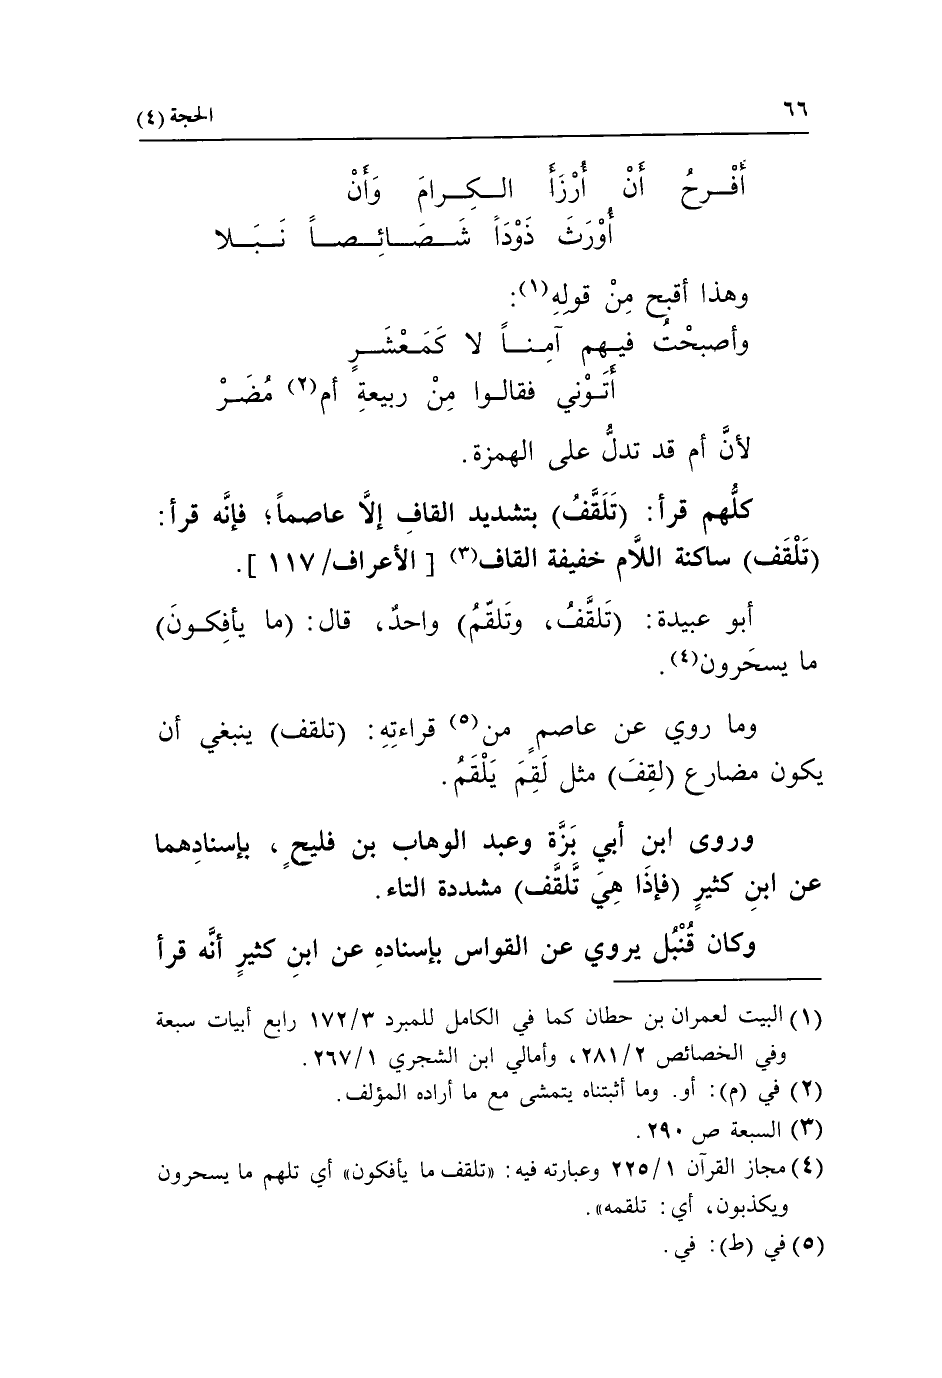 ٦٦ الحجة (٤)
أَفْرحُ أَنْ أُرْزَأَ الكِرامَ وَأَنْ
أُوْرَثَ ذَوْدَاً شَصَائِصاً نَبَلا
وهذا أقبح مِنْ قولِهِ(١):
وأصبحْتُ فيهم آمِناً لا كَمَعْشَرٍ
أَتَوْني فقالوا مِنْ ربيعةِ أم(٢) مُضَرْ
لأنَّ أم قد تدلُّ على الهمزة.
كلُّهم قرأ: (تَلَقَّفُ) بتشديد القافِ إلَّا عاصماً؛ فإنَّه قرأ:
(تَلْقَف) ساكنة اللَّام خفيفة القاف(٣) [الأعراف/ ١١٧].
أبو عبيدة: (تَلقَّفُ، وتَلقّمُ) واحدٌ، قال: (ما يأفِكونَ)
ما يسحَرون(٤).
وما روي عن عاصمٍ من(٥) قراءتِهِ: (تلقف) ينبغي أن
يكون مضارع (لقِفَ) مثل لَقِمَ يَلْقَمُ.
وروى ابن أبي بَزَّة وعبد الوهاب بن فليحٍ، بإسنادِهما
عن ابنِ كثيرٍ (فإذَا هِيَ تَّلقَّف) مشددة التاء.
وكان قُنْبُل يروي عن القواس بإسنادهِ عن ابنِ كثيرٍ أنَّه قرأ
(١) البيت لعمران بن حطان كما في الكامل للمبرد ١٧٢/٣ رابع أبيات سبعة
وفي الخصائص ٢٨١/٢، وأمالي ابن الشجري ٢٦٧/١.
(٢) في (م): أو. وما أثبتناه يتمشى مع ما أراده المؤلف.
(٣) السبعة ص ٢٩٠.
(٤) مجاز القرآن ٢٢٥/١ وعبارته فيه: «تلقف ما يأفكون» أي تلهم ما يسحرون
ويكذبون، أي: تلقمه».
(٥) في (ط): في.